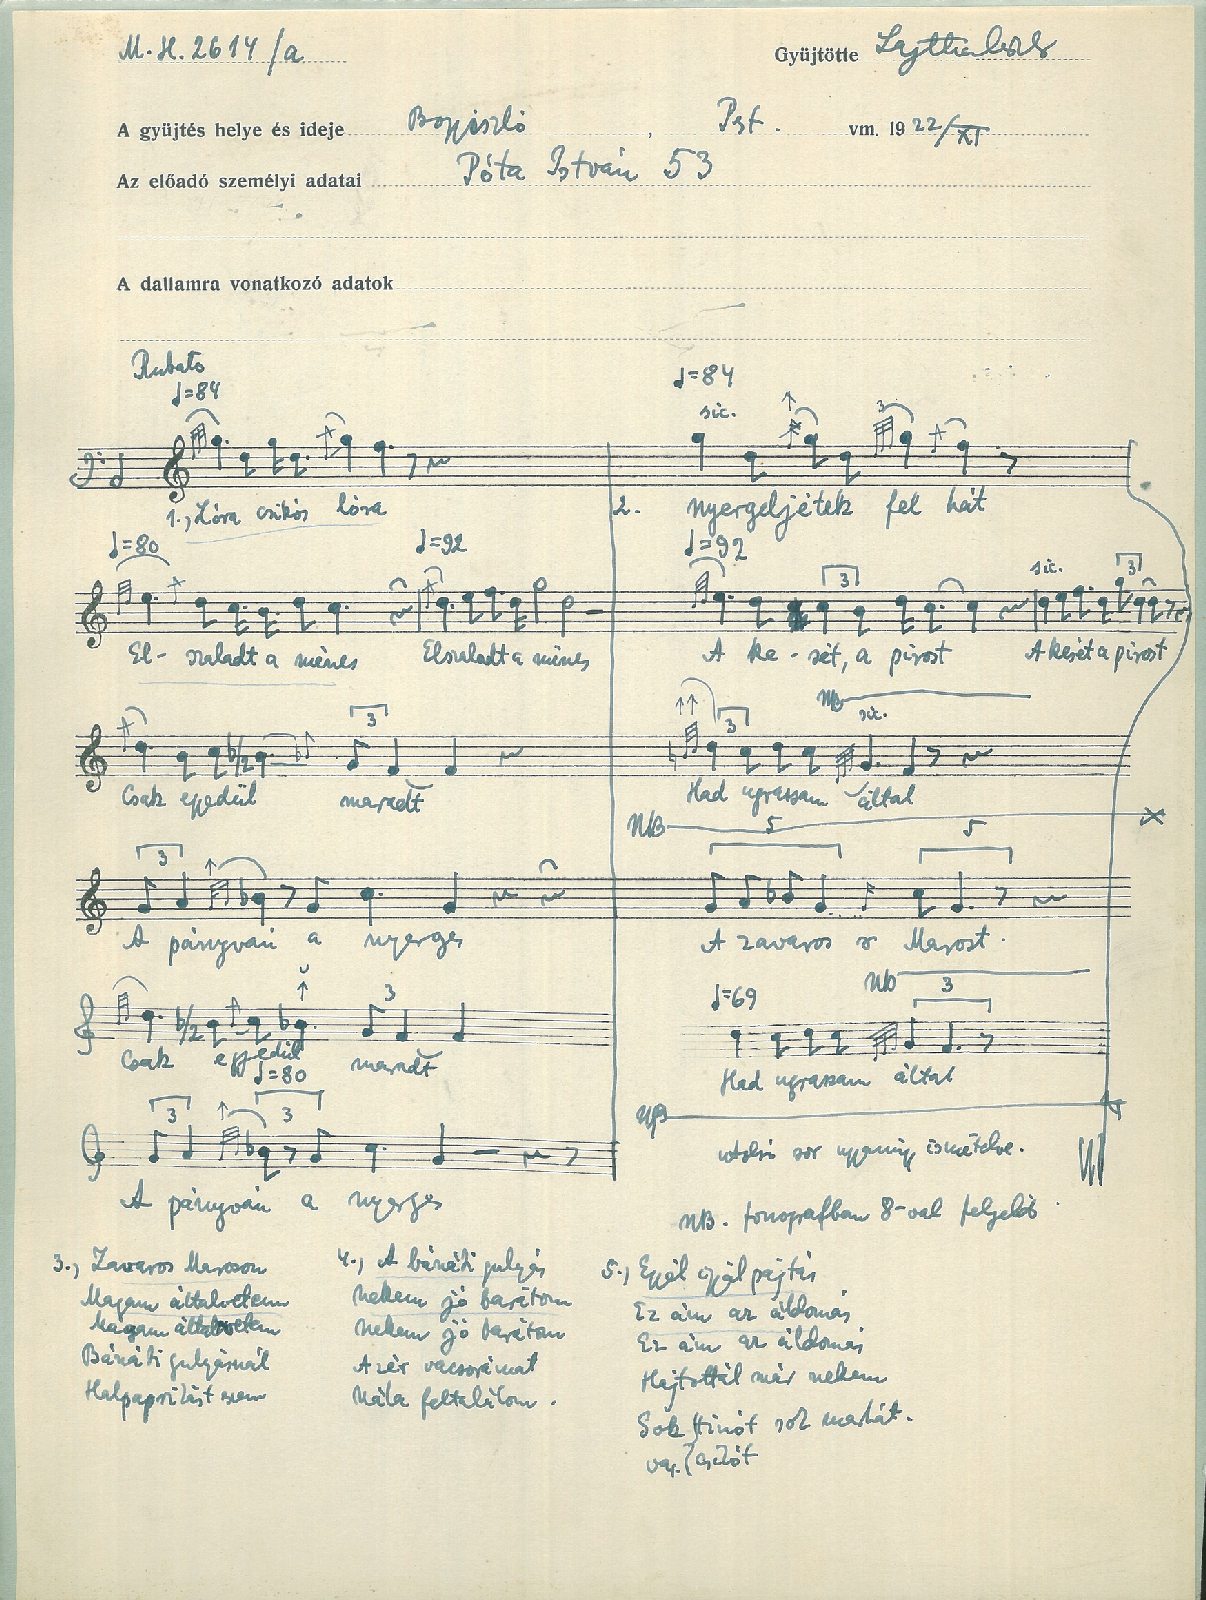 M. H. 2614/a
Gyüjtötte Lajtha László
A gyüjtés helye és ideje , Pest. vm. 1922/XI
Az előadó személyi adatai Póta István 53
A dallamra vonatkozó adatok
Rubato
♩=84
♩=84
sic.
3
1., Lóra csikós lóra
2. nyergeljétek fel hát
♩=80
♩=92
♩=92
3
sic.
3
El- szaladt a ménes Elszaladt a ménes
A ke - sét, a pirost A kesét a pirost
3
3
NB
sic.
Csak egyedül maradt
Had ugrassam által
NB
3
5
5
A pányván a nyerges
A zavaros sz Marost.
3
♩=69
NB
3
Csak egyedül maradt
Had ugrassam által
♩=80
3
3
NB
utolsó sor ugyanúgy ismételve.
A pányván a nyerges
NB. fonografban 8-val feljebb
3., Zavaros Maroson
Magam általvetem
Magam általvetem
Bánáti gulyásnál
Halpaprikást eszem
4., A bánáti gulyás
Nekem jó barátom
Nekem jó barátom
Azér vacsorámat
Nála feltalálom.
5., Egyél egyél pajtás
Ez ám az áldomás
Ez ám az áldomás
Hajtottál már nekem
Sok tinót sok marhát.
var. csikót